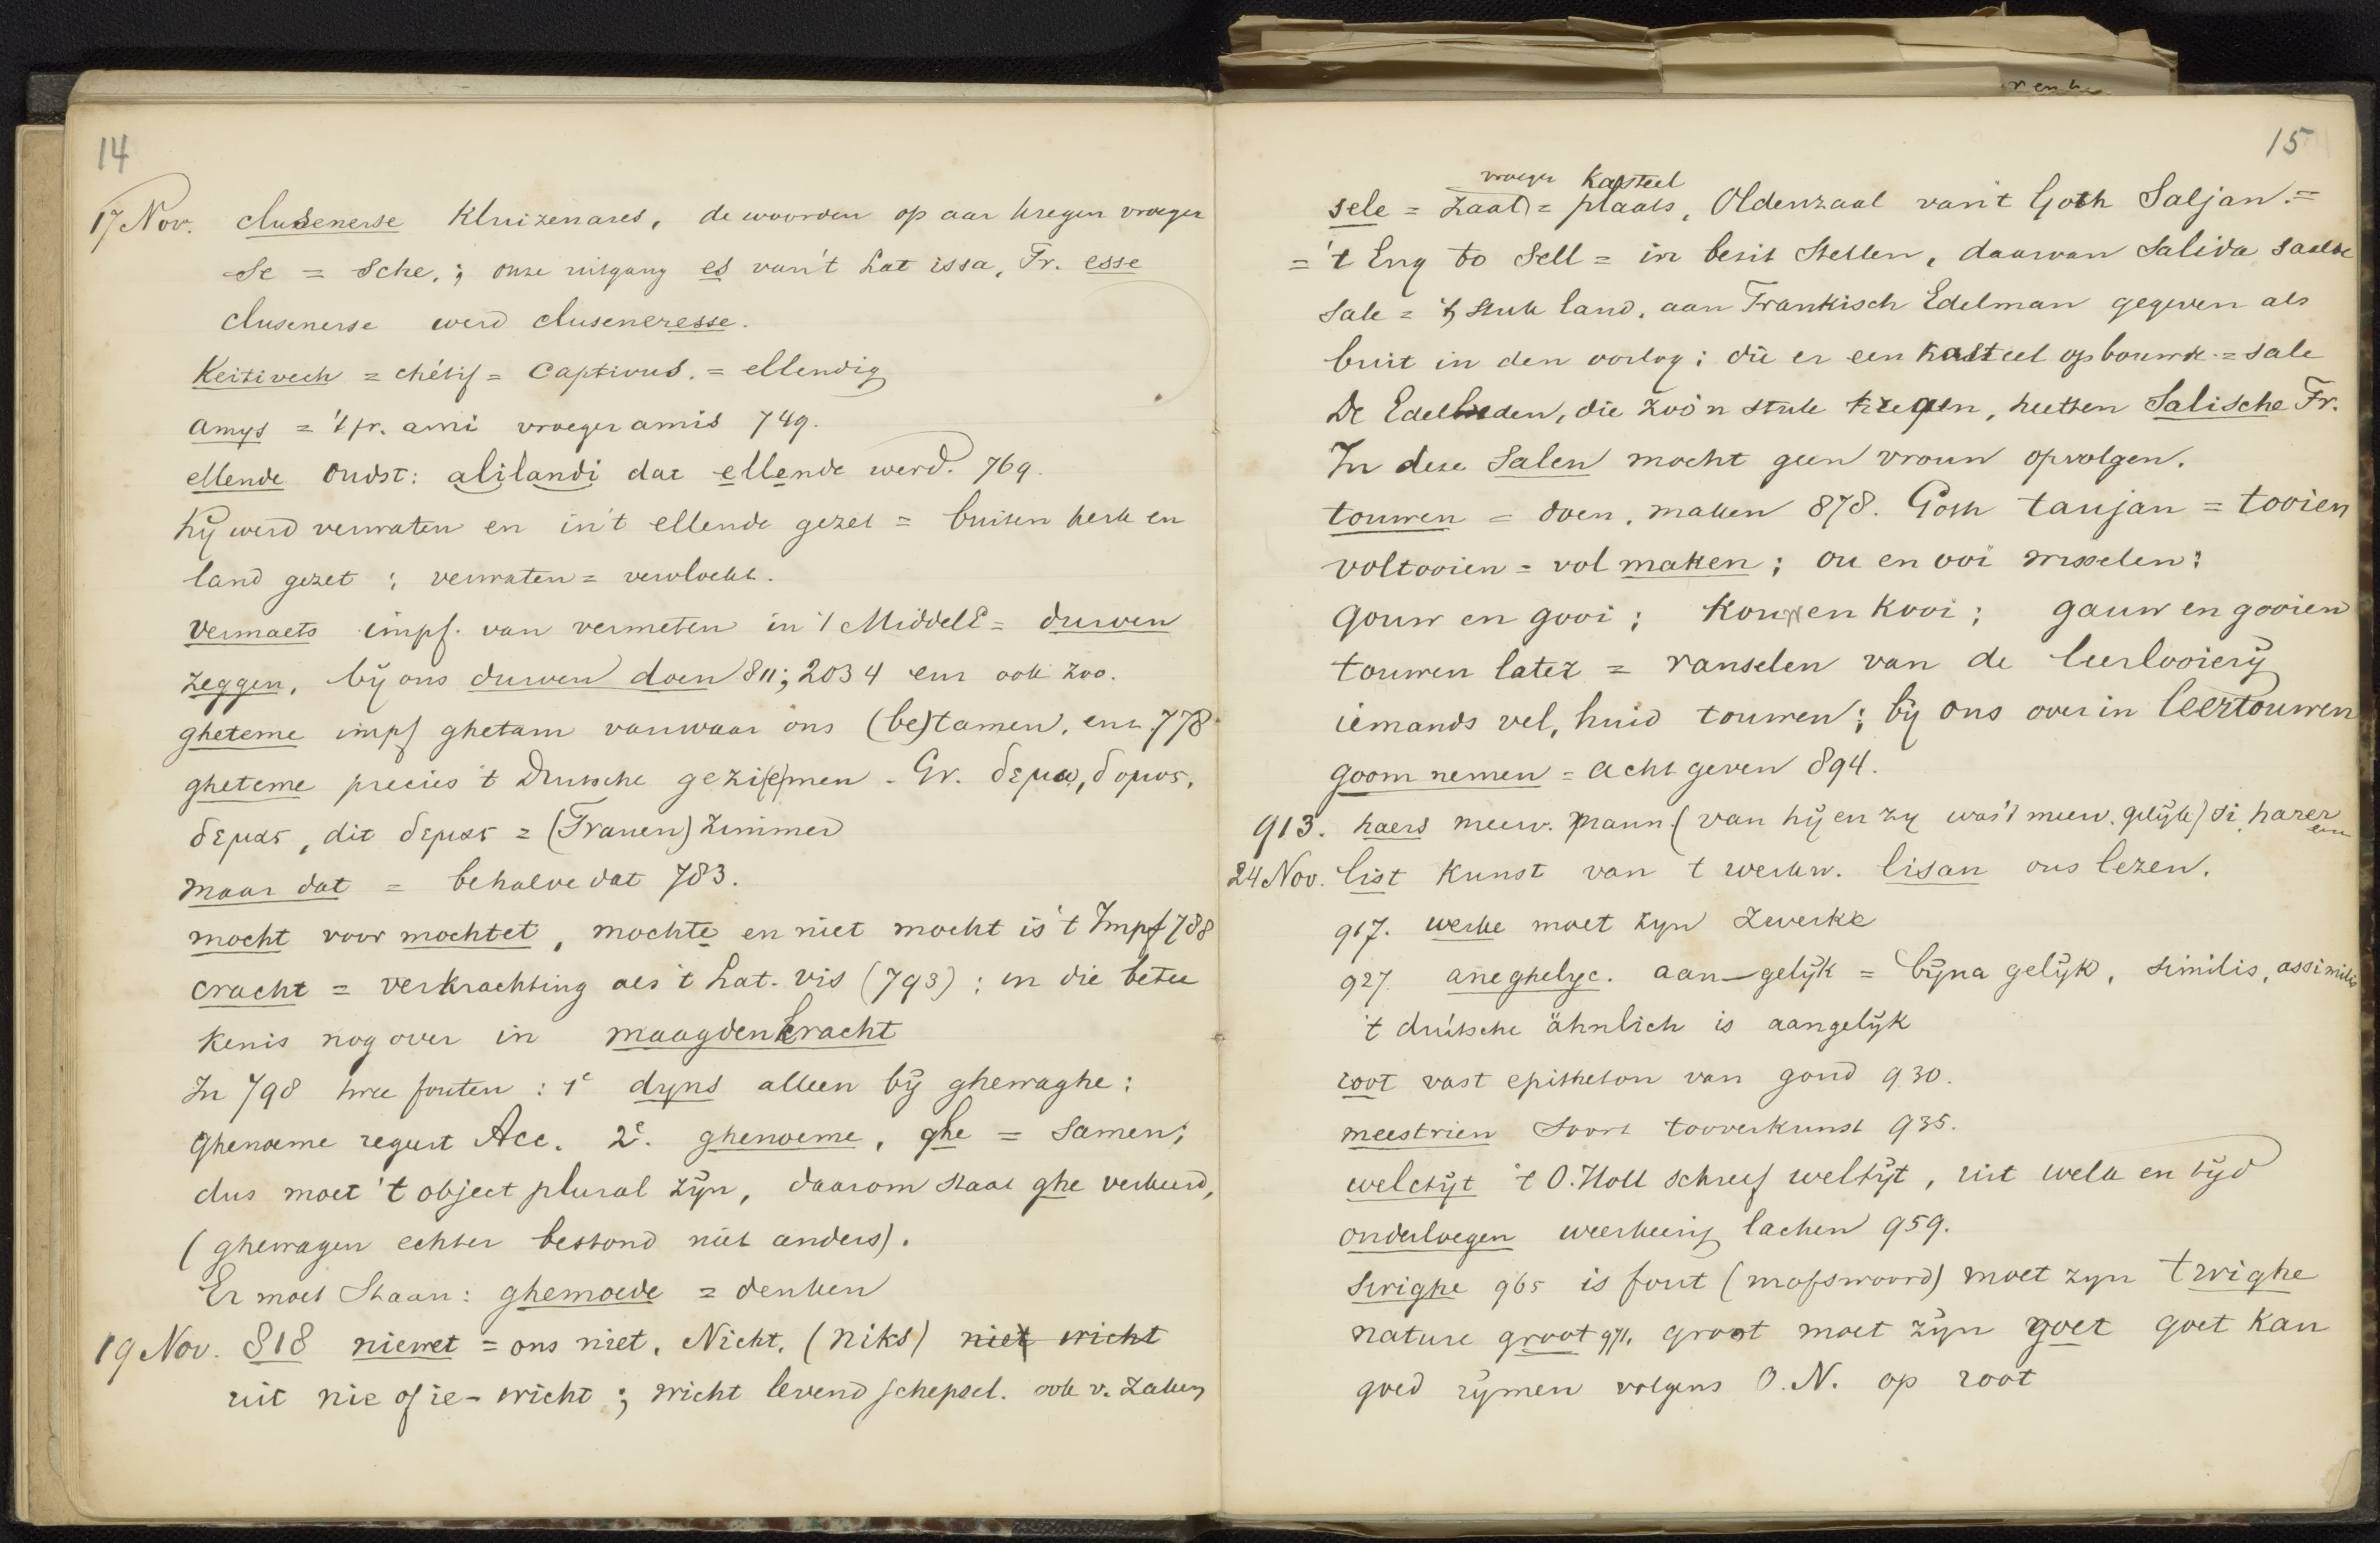 14
17 Nov. clusenerse Kluizenares, de woorden op aar kregen vroeger
se = sche, ; onze uitgang es van 't Lat issa, Fr. esse
clusenerse werd cluseneresse.
Keitivech = chétif = captivus. = ellendig
amys = 't fr. ami vroeger amis 749.
ellende oudst: alilandi dat ellende werd. 769.
hij werd verwaten en in 't ellende gezet = buiten kerk en
land gezet ; verwaten = vervloekt.
vermaets impf. van vermeten in 't Middel E = durven
zeggen, bij ons durven doen 811; 2034 enz ook zoo.
gheteme impf ghetam vanwaar ons (be)tamen, enz 778
gheteme precies 't Duitsche gezi(e)men - Gr. δεμω, δομος,
δεμας, dit δεμας = (Frauen) zimmer
maar dat = behalve dat 783.
mocht voor mochtet, mochte en niet mocht is 't Impf 788
cracht = verkrachting als 't Lat. vis (793) ; in die betee
kenis nog over in maagdenkracht
In 798 twee fouten : 1e dyns alleen bij ghewaghe :
ghenoeme regeert Acc. 2e. ghenoeme, ghe = samen;
dus moet 't object plural zijn, daarom staat ghe verkeerd,
(ghewagen echter bestond niet anders).
Er moet staan : ghemoede = denken
19 Nov. 818 niewet = ons niet, Nicht, (niks) niet wicht
uit nie of ie - wicht ; wicht levend schepsel. ook v. zaken
15
vroeger Kasteel
sele = zaal) = plaats, Oldenzaal van 't Goth Saljan. =
= 't Eng to sell = in bezit stellen, daarvan Salida saelde
sale = 't stuk land, aan Frankisch Edelman gegeven als
buit in den oorlog ; die er een kasteel op bouwde. = sale
De Edellieden, die zoo'n stuk kregen, heetten Salische Fr.
In deze Salen mocht geen vrouw opvolgen.
touwen = doen, maken 878. Goth taujan = tooien
voltooien = vol maken ; ou en ooi wisselen :
gouw en gooi ; kouw en kooi ; gauw en gooien
touwen later = ranselen van de leerlooierij
iemands vel, huid touwen ; bij ons over in leertouwen
goom nemen = acht geven 894.
913. haers meerv. pronn. (van hij en zy was 't meerv. gelijk) si, harer
24 Nov. list Kunst van 't werkw. lisan ons lezen.
917. werke moet zyn zwerke
927. aneghelyc. aan-gelijk = bijna gelijk, similis, assimilis
't duitsche ähnlich is aangelijk
root vast epitheton van goud 930.
meestrien soort tooverkunst 935.
welctijt 't O.Holl schreef weltijt, uit welk en tijd
onderloegen weerkeerig lachen 959.
swighe 965 is fout (mofswoord) moet zyn twighe
nature groot 971. groot moet zijn goet goet kan
goed rijmen volgens O.N. op root